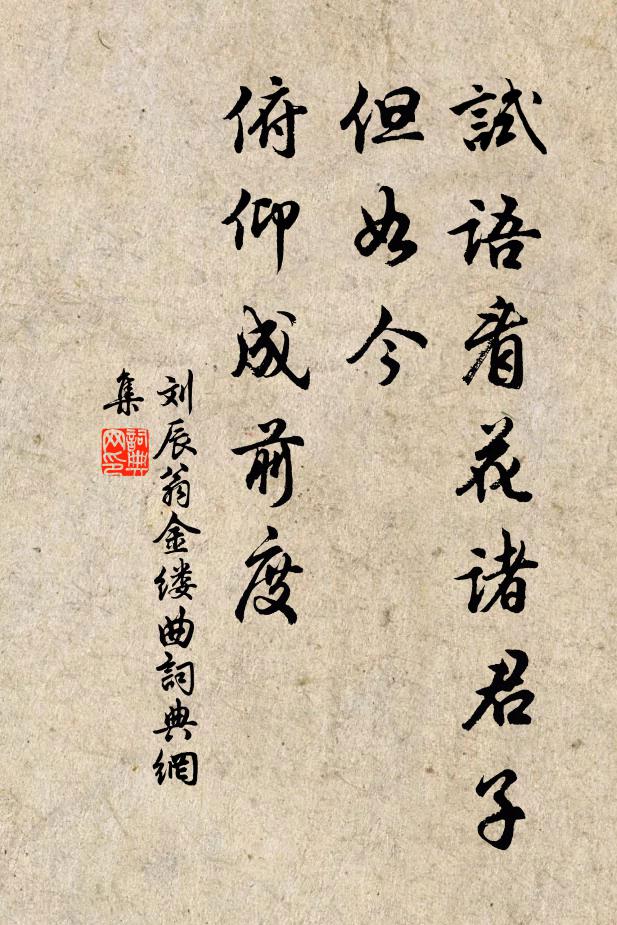 試語看花诸君子
但如今
俯仰成前度
刘辰翁金缕曲詞典網
集
詞典
网印